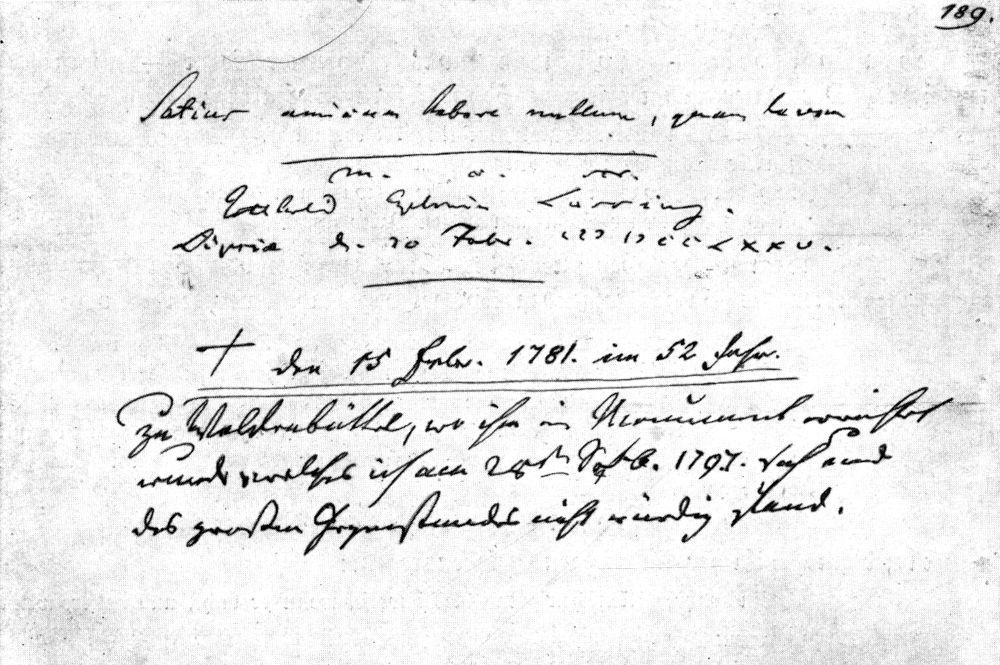 189.
Satius amicum habere nullum, quam levem
m. a. scr.
Gotthold Ephraim Lessing.
Lipsiae d. 20 Febr. MDCCLXXV.
† den 15 Febr. 1781. im 52 Jahr.
zu Wolfenbüttel, wo ihm ein Monument errichtet
wurde welches ich am 28ten Septb. 1797. sah und
des großen Gegenstandes nicht würdig fand.